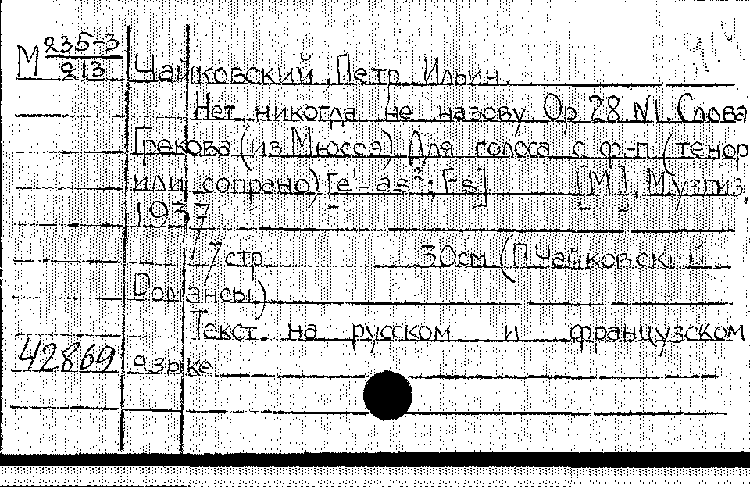 М 235-3/213
Чайковский, Петр Ильич.
Нет никогда не назову Ор 28 №1. Слова
Грекова (из Мюссе) Для голоса с ф-п (тенор
или сопрано) [М], Музгиз,
1937
7 стр 30см (П Чайковский
Романсы)
Текст на русском и французском
42869 языке